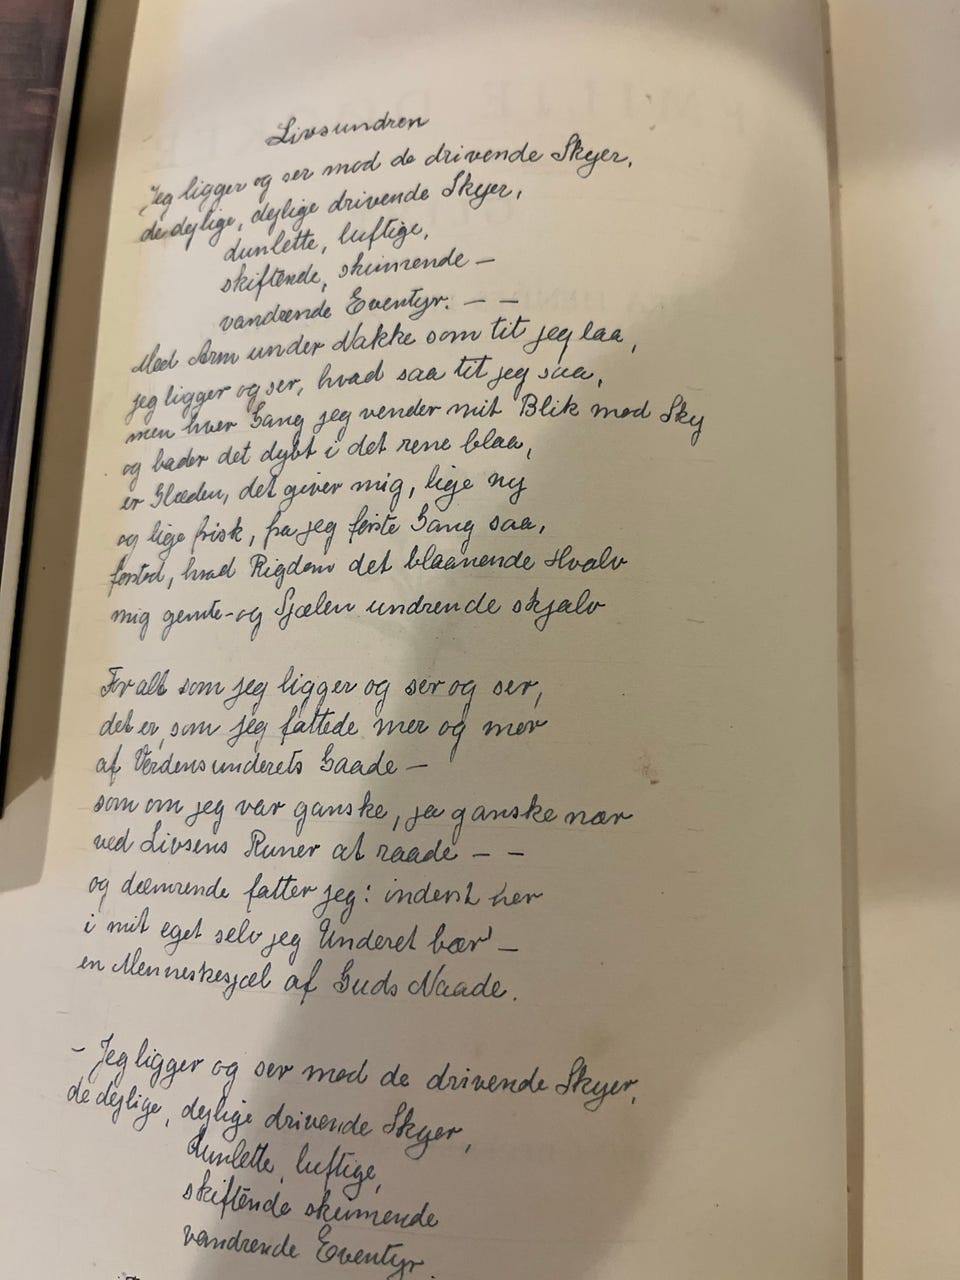 Livsundren
Jeg ligger og ser mod de drivende Skyer,
de dejlige, dejlige drivende Skyer,
dunlette, luftige,
skiftende, skummende —
vandrende Eventyr. — —
Med Arm under Nakke som tit jeg laa,
jeg ligger og ser, hvad saa tit jeg saa,
men hver Gang jeg vender mit Blik mod Sky
og bader det dybt i det rene blaa,
er Glæden, det giver mig, lige ny
og lige frisk, fra jeg første Gang saa,
forstod, hvad Rigdom det blaanende Hvalv
mig gemte - og Sjælen undrende skjalv
For alt som jeg ligger og ser og ser,
det er, som jeg fattede mer og mer
af Verdensunderets Gaade —
som om jeg var ganske, ja ganske nær
ved Livsens Runer at raade — —
og dæmrende fatter jeg: inderst her
i mit eget selv jeg Underet bær' —
en Menneskesjæl af Guds Naade.
– Jeg ligger og ser mod de drivende Skyer,
de dejlige, dejlige drivende Skyer,
dunlette, luftige,
skiftende skummende
vandrende Eventyr